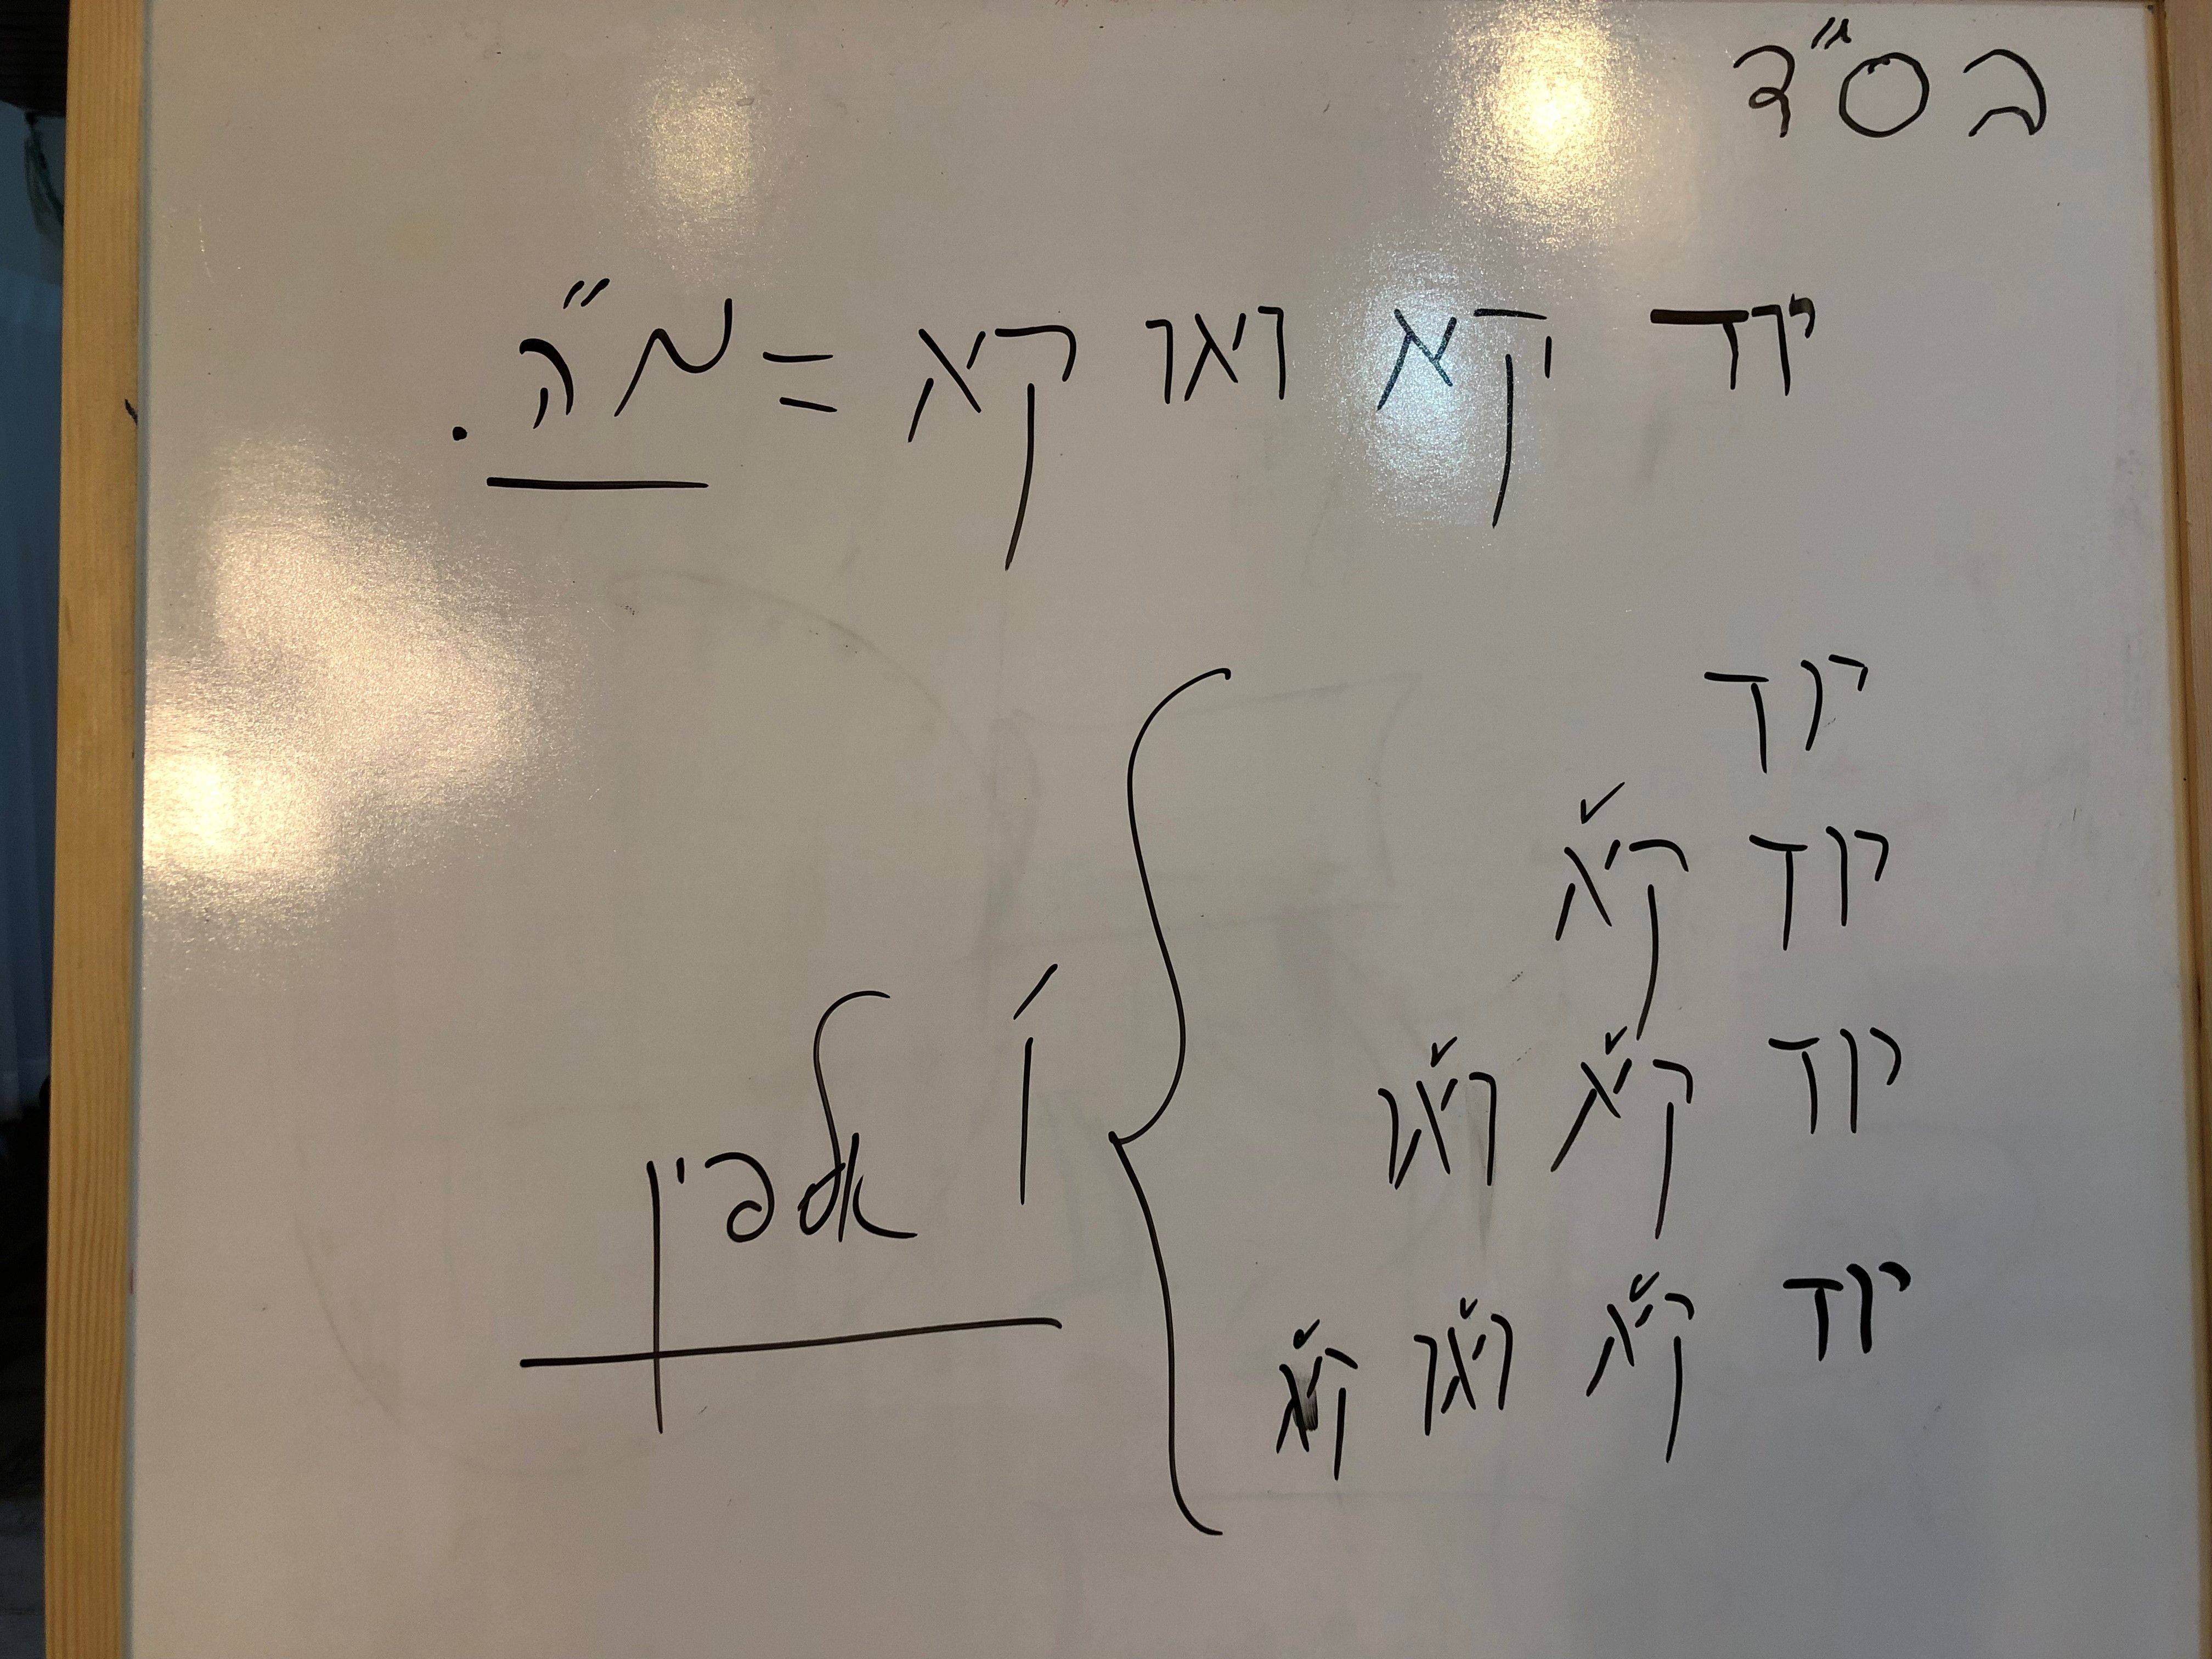 בס"ד
יוד קא ואו קא = מ"ה.
יוד
יוד קא
יוד קא ואו
יוד קא ואו קא
ו' אלפין